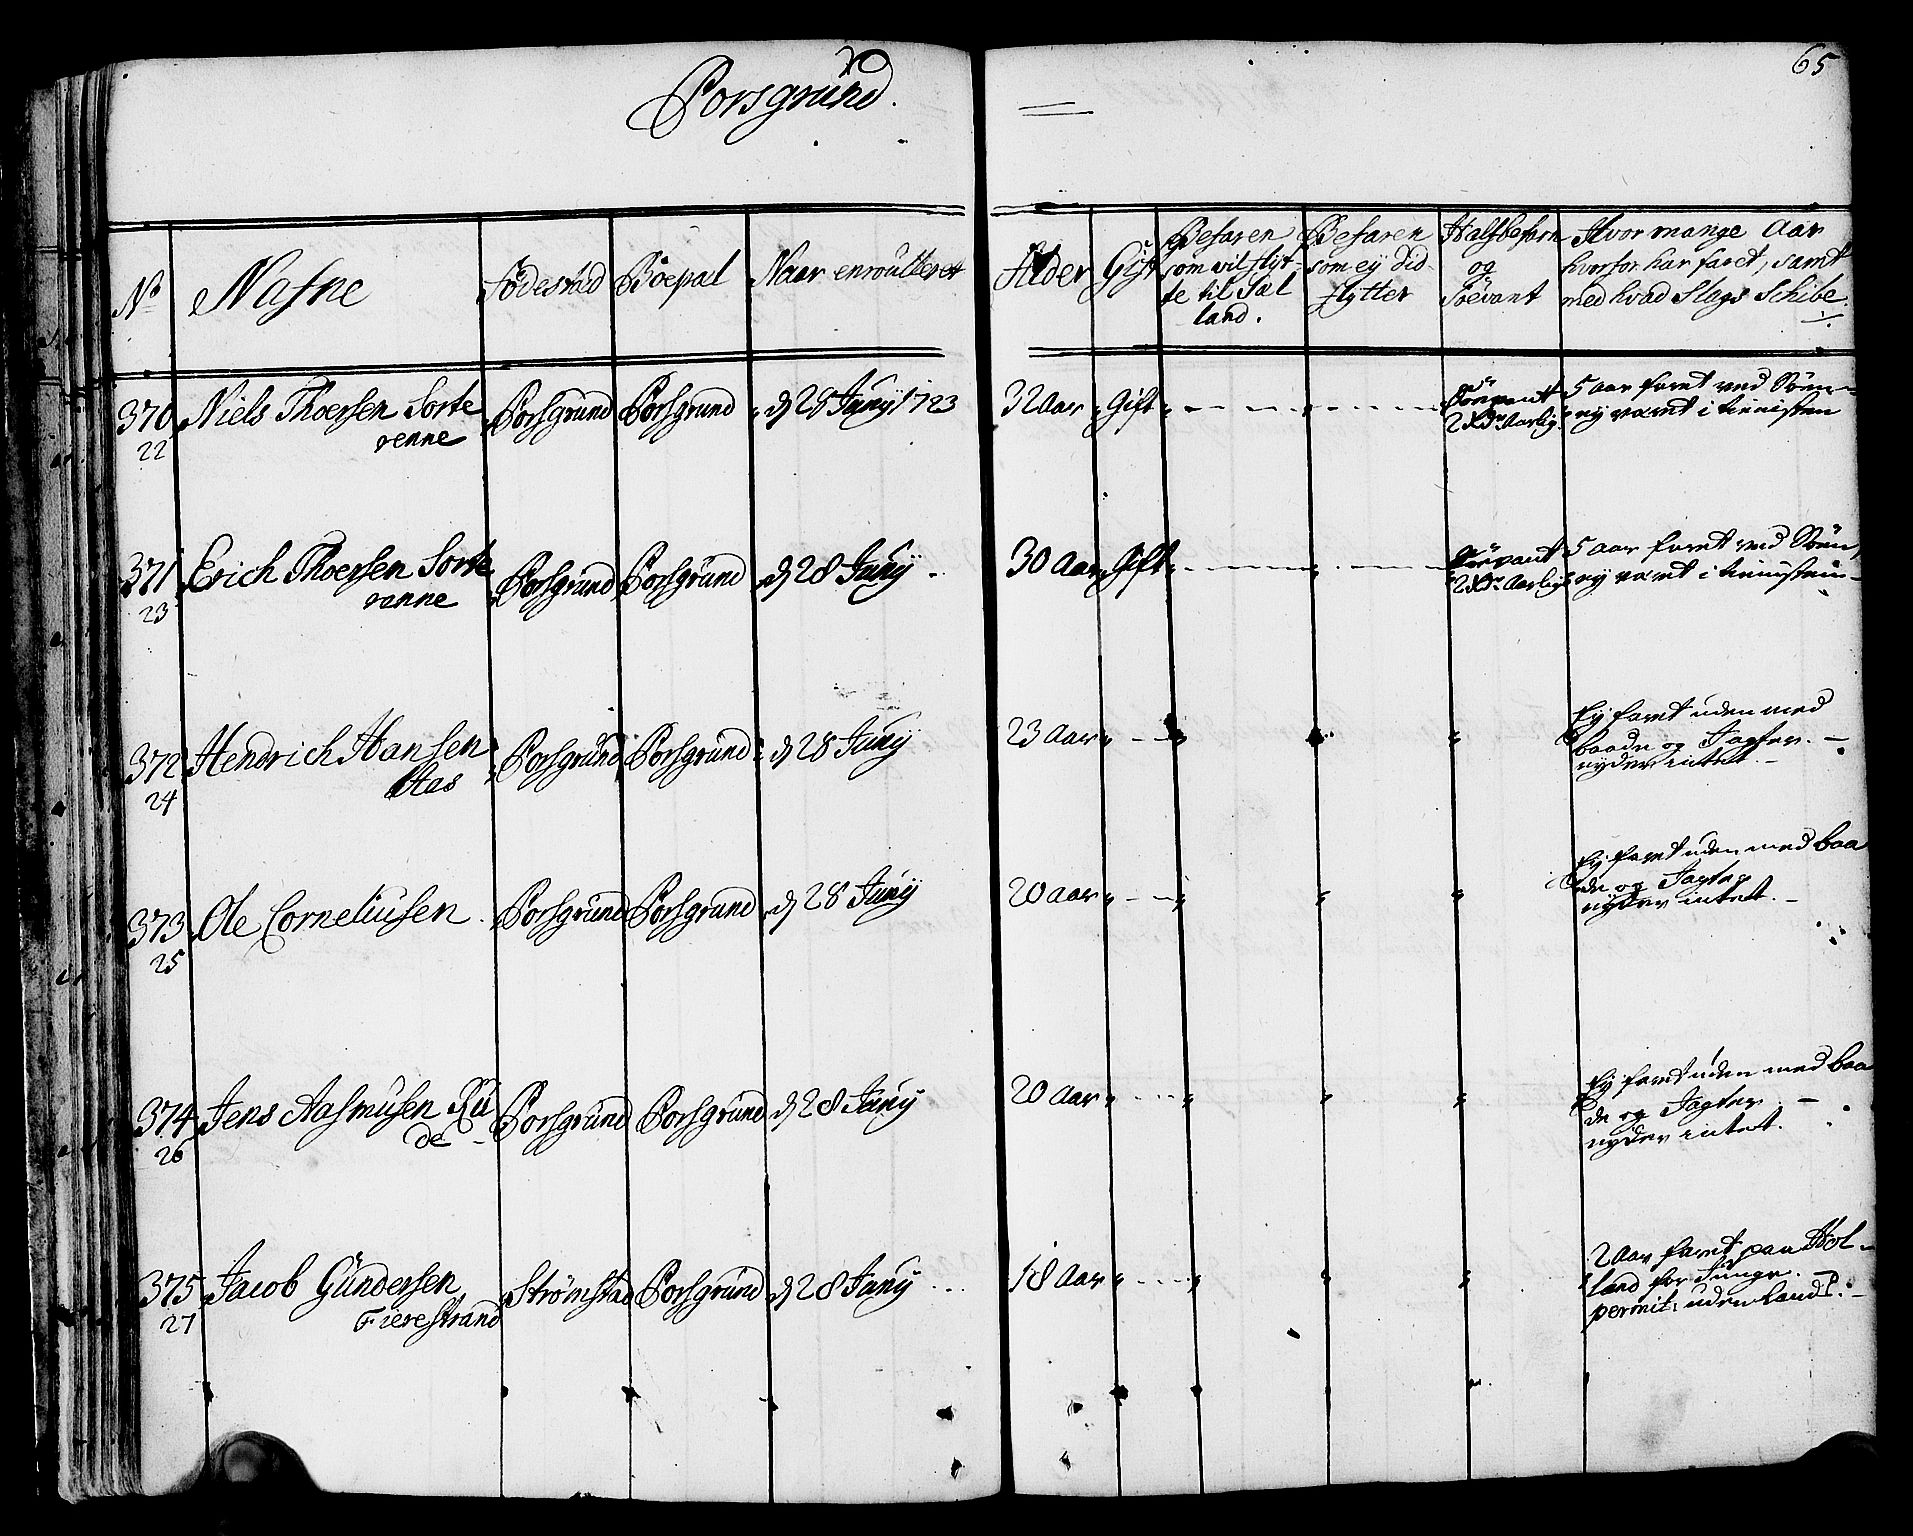 Porsgrund.
65
No
Nafne
Födestad
Böepæl
Naar enroulleret
Alder
Gift
Befaren
som vil flyt-
te til Sæl
land.
Befaren
som ey did
flytter
Halfbefarn
og
Söevant
Hvor mange Aar
hvorfor har faret, samt
med hvad Slags Schibe
370
22
Niels Thoersen Sorte
renne
Porsgrund
Porsgrund
d 28 Juny 1723
32 Aar
Gift
Söevant
2 Rdr Aarlig
5 aar faret ved Søen
ey varet i tienisten
371
23
Erich Thoersen Sorte
renne
Porsgrund
Porsgrund
d 28 Juny
30 Aar
Gift
Söevant
2 Rdr Aarlig
5 aar faret ved Søen,
ey varet i tienisten
372
24
Hendrich Hansen
Aas
Porsgrund
Porsgrund
d 28 Juny
23 Aar
Ey faret uden med
baade og Jagter.
nyder intet.
373
25
Ole Corneliusen
Porsgrund
Porsgrund
d 28 Juny
20 Aar
Ey faret uden med baa
de og Jagter
nyder intet.
374
26
Jens Aasmusen Rü
de
Porsgrund
Porsgrund
d 28 Juny
20 Aar
Ey faret uden med baa
de og Jagter
nyder intet.
375
27
Jacob Gündersen
Fierestrand
Strömstad
Porsgrund
d 28 Juny
18 Aar
2 Aar faret paa Hol-
land for Junge.
permit: udenlands.